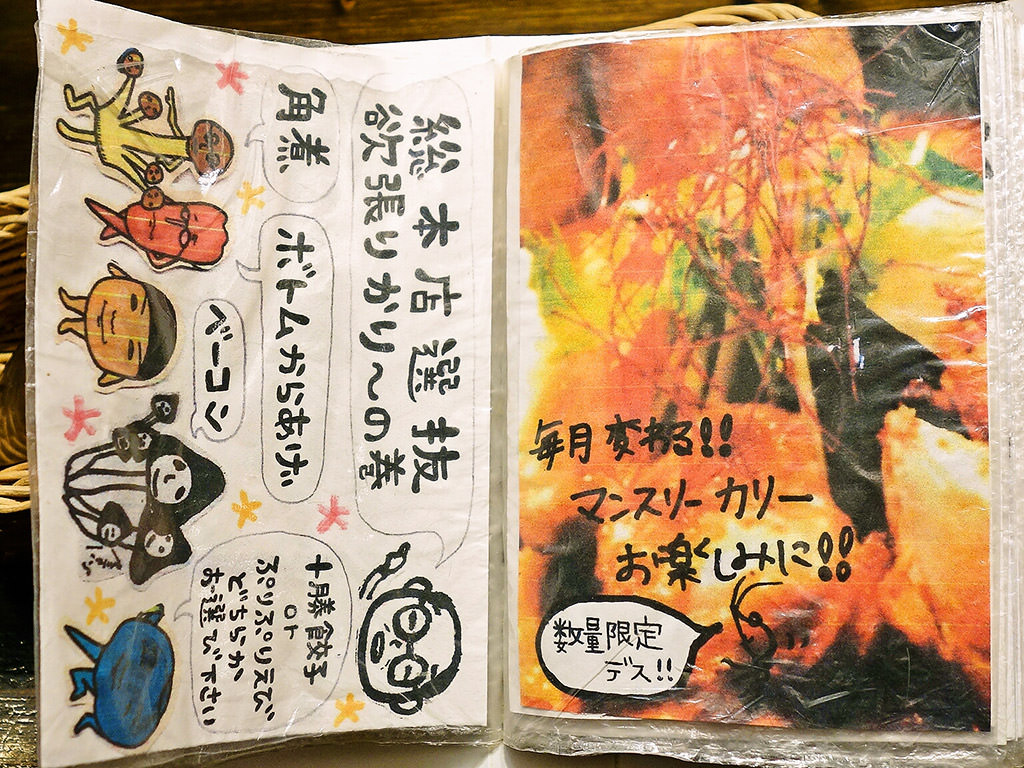 総本店選抜
欲張りかり〜の巻
角煮
ボトムからあげ
ベーコン
十勝餃子
or
ぷりぷりえび
どちらか
お選び下さい
毎月変わる!!
マンスリーカリー
お楽しみに!!
数量限定
デス!!